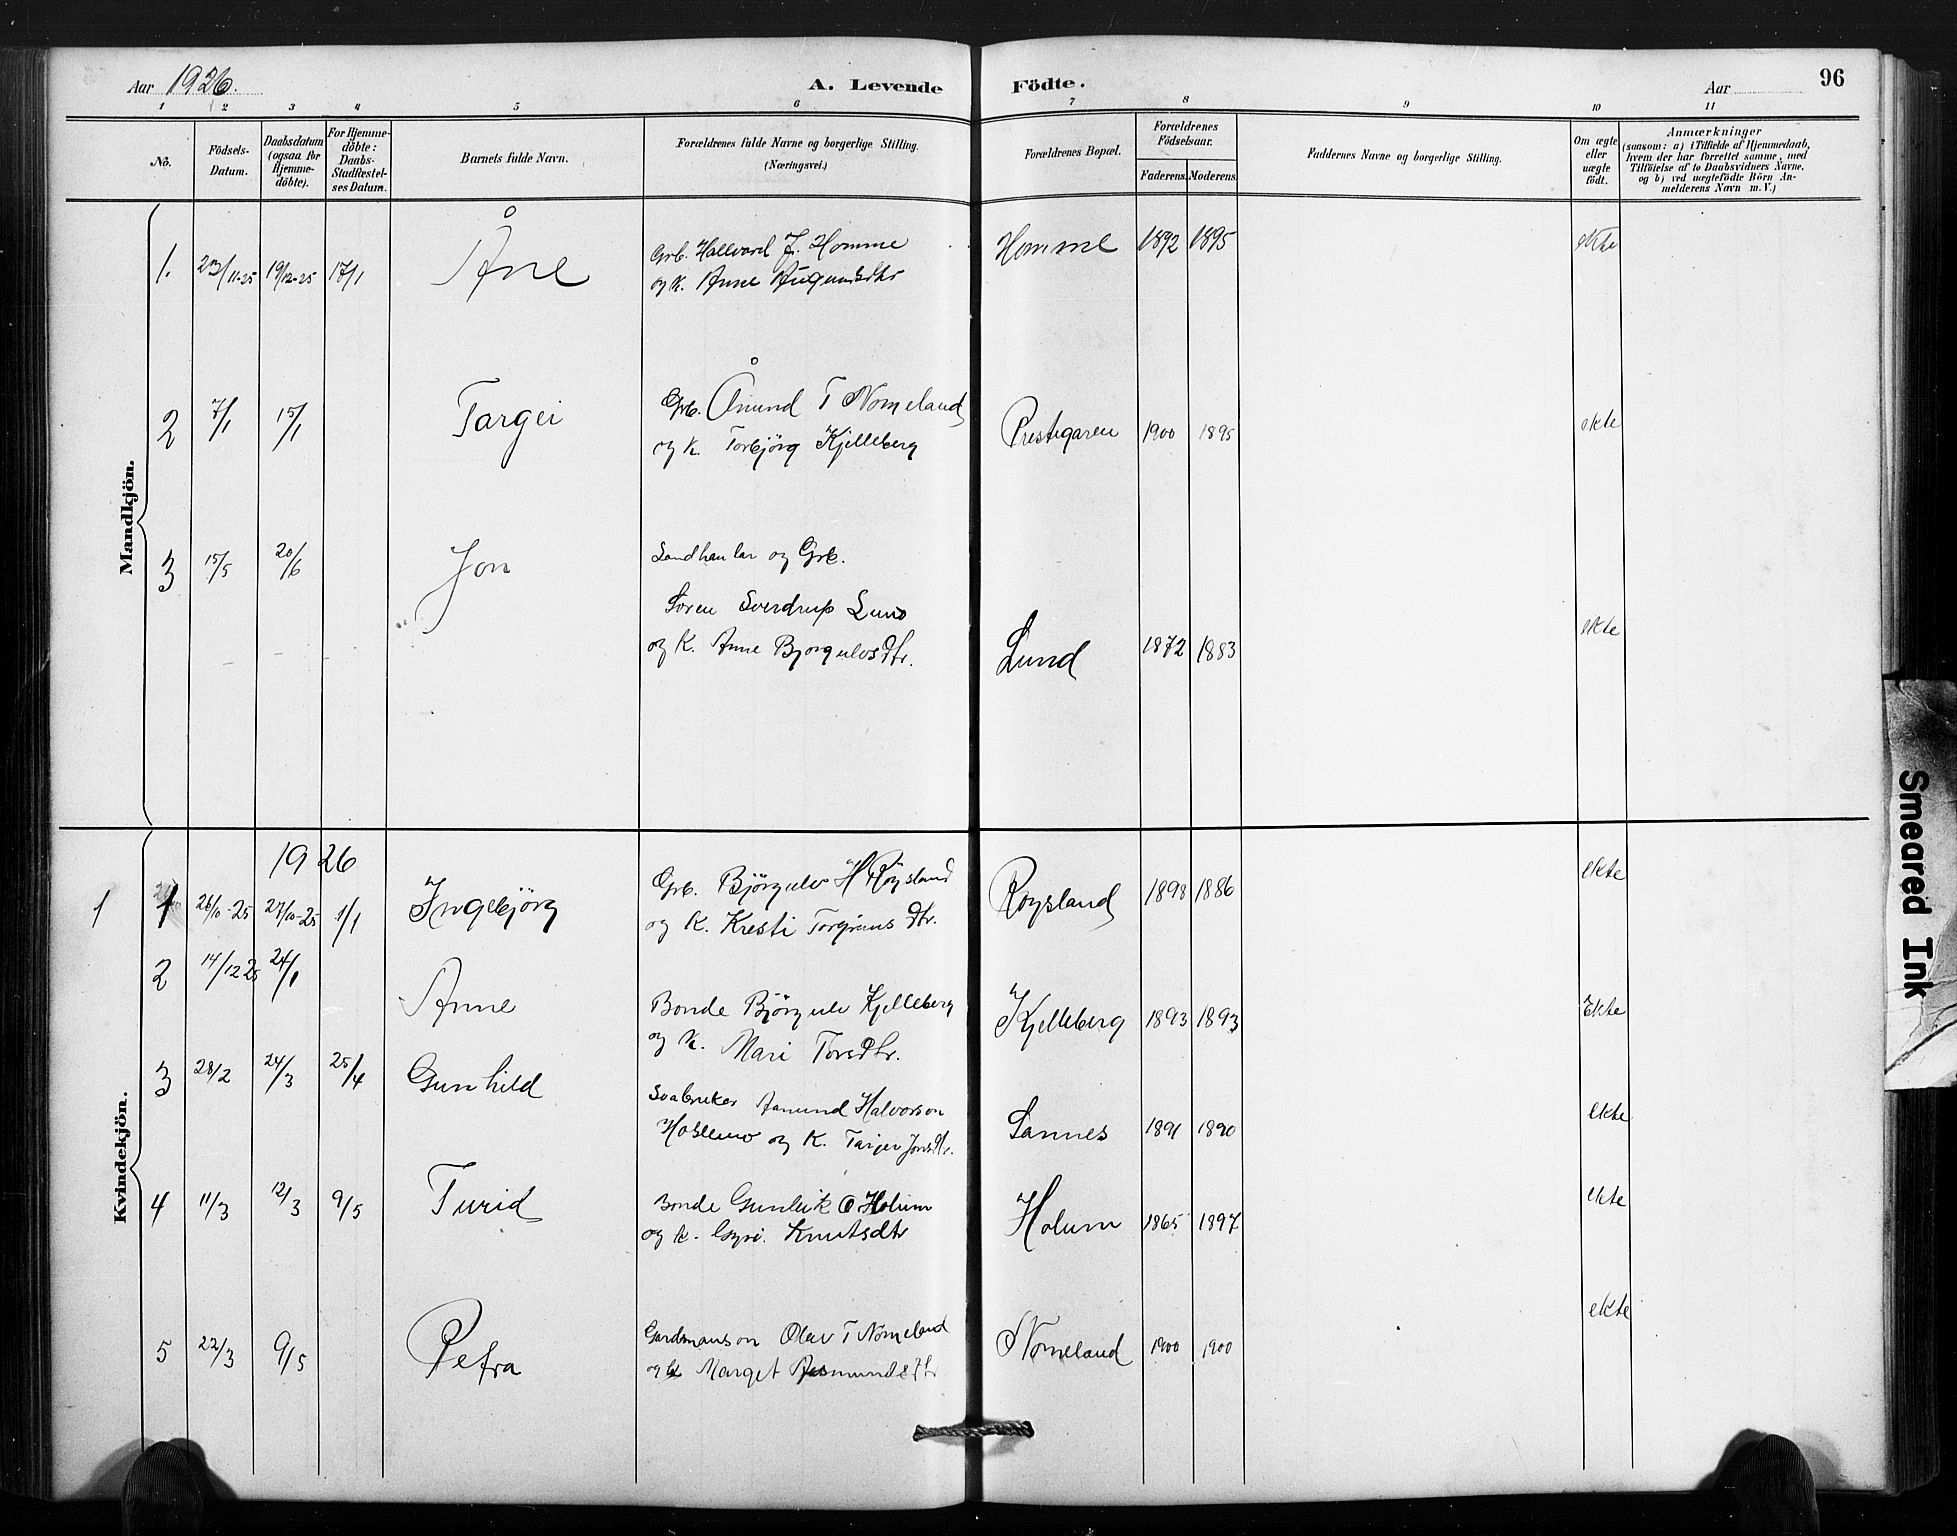 Aar 1926. A. Levende Födte. Aar 96
1 2 3 4 5 6 7 8 9 10 11
Nô. Födsels-Datum. Daabsdatum (ogsaa for Hjemmedöbte). For Hjemmedöbte: Daabs-Stadfæstelses Datum. Barnets fulde Navn. Forældrenes fulde Navne og borgerlige Stilling. (Næringsvei.) Forældrenes Bopæl. Forældrenes Födselsaar. Faderens. Moderens. Faddernes Navne og borgerlige Stilling. Om ægte eller uægte födt. Anmærkninger (saasom: a) i Tilfælde af Hjemmedaab, hvem der har forrettet samme, med Tilföielse af to Daabsvidners Navne. og b) ved uægtefödte Börn Anmelderens Navn m. V.)
Mandkjön.
1. 23/11-25 19/12-25 17/1 Åne Grb. Hallvard J. Homme Homme 1892 1895 ekte
og K. Anne Augundsdtr
2 7/1 15/1 Targei Grb. Ånund T Nomeland
og K. Torbjörg Kjelleberg Prestegaren 1900 1895 ekte
3 15/5 20/6 Jon Landhanlar og Grb.
Soren Sverdrup Lund
og K. Anne Bjorgulvsdtr. Lund 1872 1883 ekte
Kvindekjön.
1926
1 1 26/10-25 27/10-25 1/1 Ingebjörg Grb. Björgulv H Röysland Roysland 1898 1886 ekte
og K. Kresti Torgrims dtr.
2 14/12 25 24/1 Anne Bonde Björgulv Kjelleberg Kjelleberg 1893 1893 Ekte
og K. Mari Torsdtr.
3 28/2 24/3 25/4 Gunhild Aanund Halvorson
og K. Jonsdtr. Sannes 1891 1890 ekte
4 11/3 12/3 9/5 Turid Bonde Gunleik O Holum Holum 1865 1897 ekte
og K. Gyro. Knutsdtr
5 22/3 9/5 Petra Gardmannson Olav T Nomeland Nomeland 1900 1900 ekte
og K Marget Aasmundsdtr
Smeared Ink